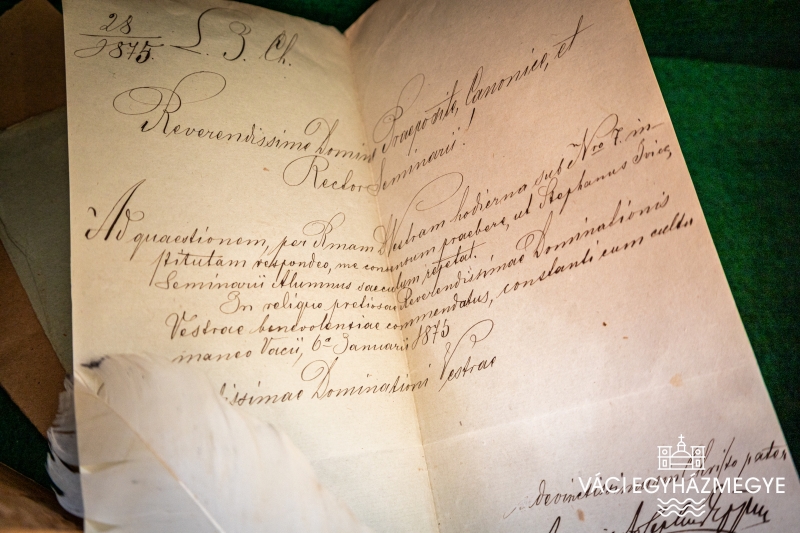 28
1875.
L. 3. Ch.
Reverendissime Domine Praeposite, Canonice, et
Rector Seminarii!
Ad quaestionem, per Rmam Vestram hodierna sub Nro 7. in
stitutam respondeo, me consensum praebere, ut Stephanus
Seminarii Alumnus saeculum repetat.
In reliquo pretiosae Reverendissimae Dominationis
Vestrae benevolentiae commendatus, constanti cum cultu
maneo Vacii, 6a Januarii 1875
issimae Dominationi Vestrae
Christo pater
VÁCI EGYHÁZMEGYE